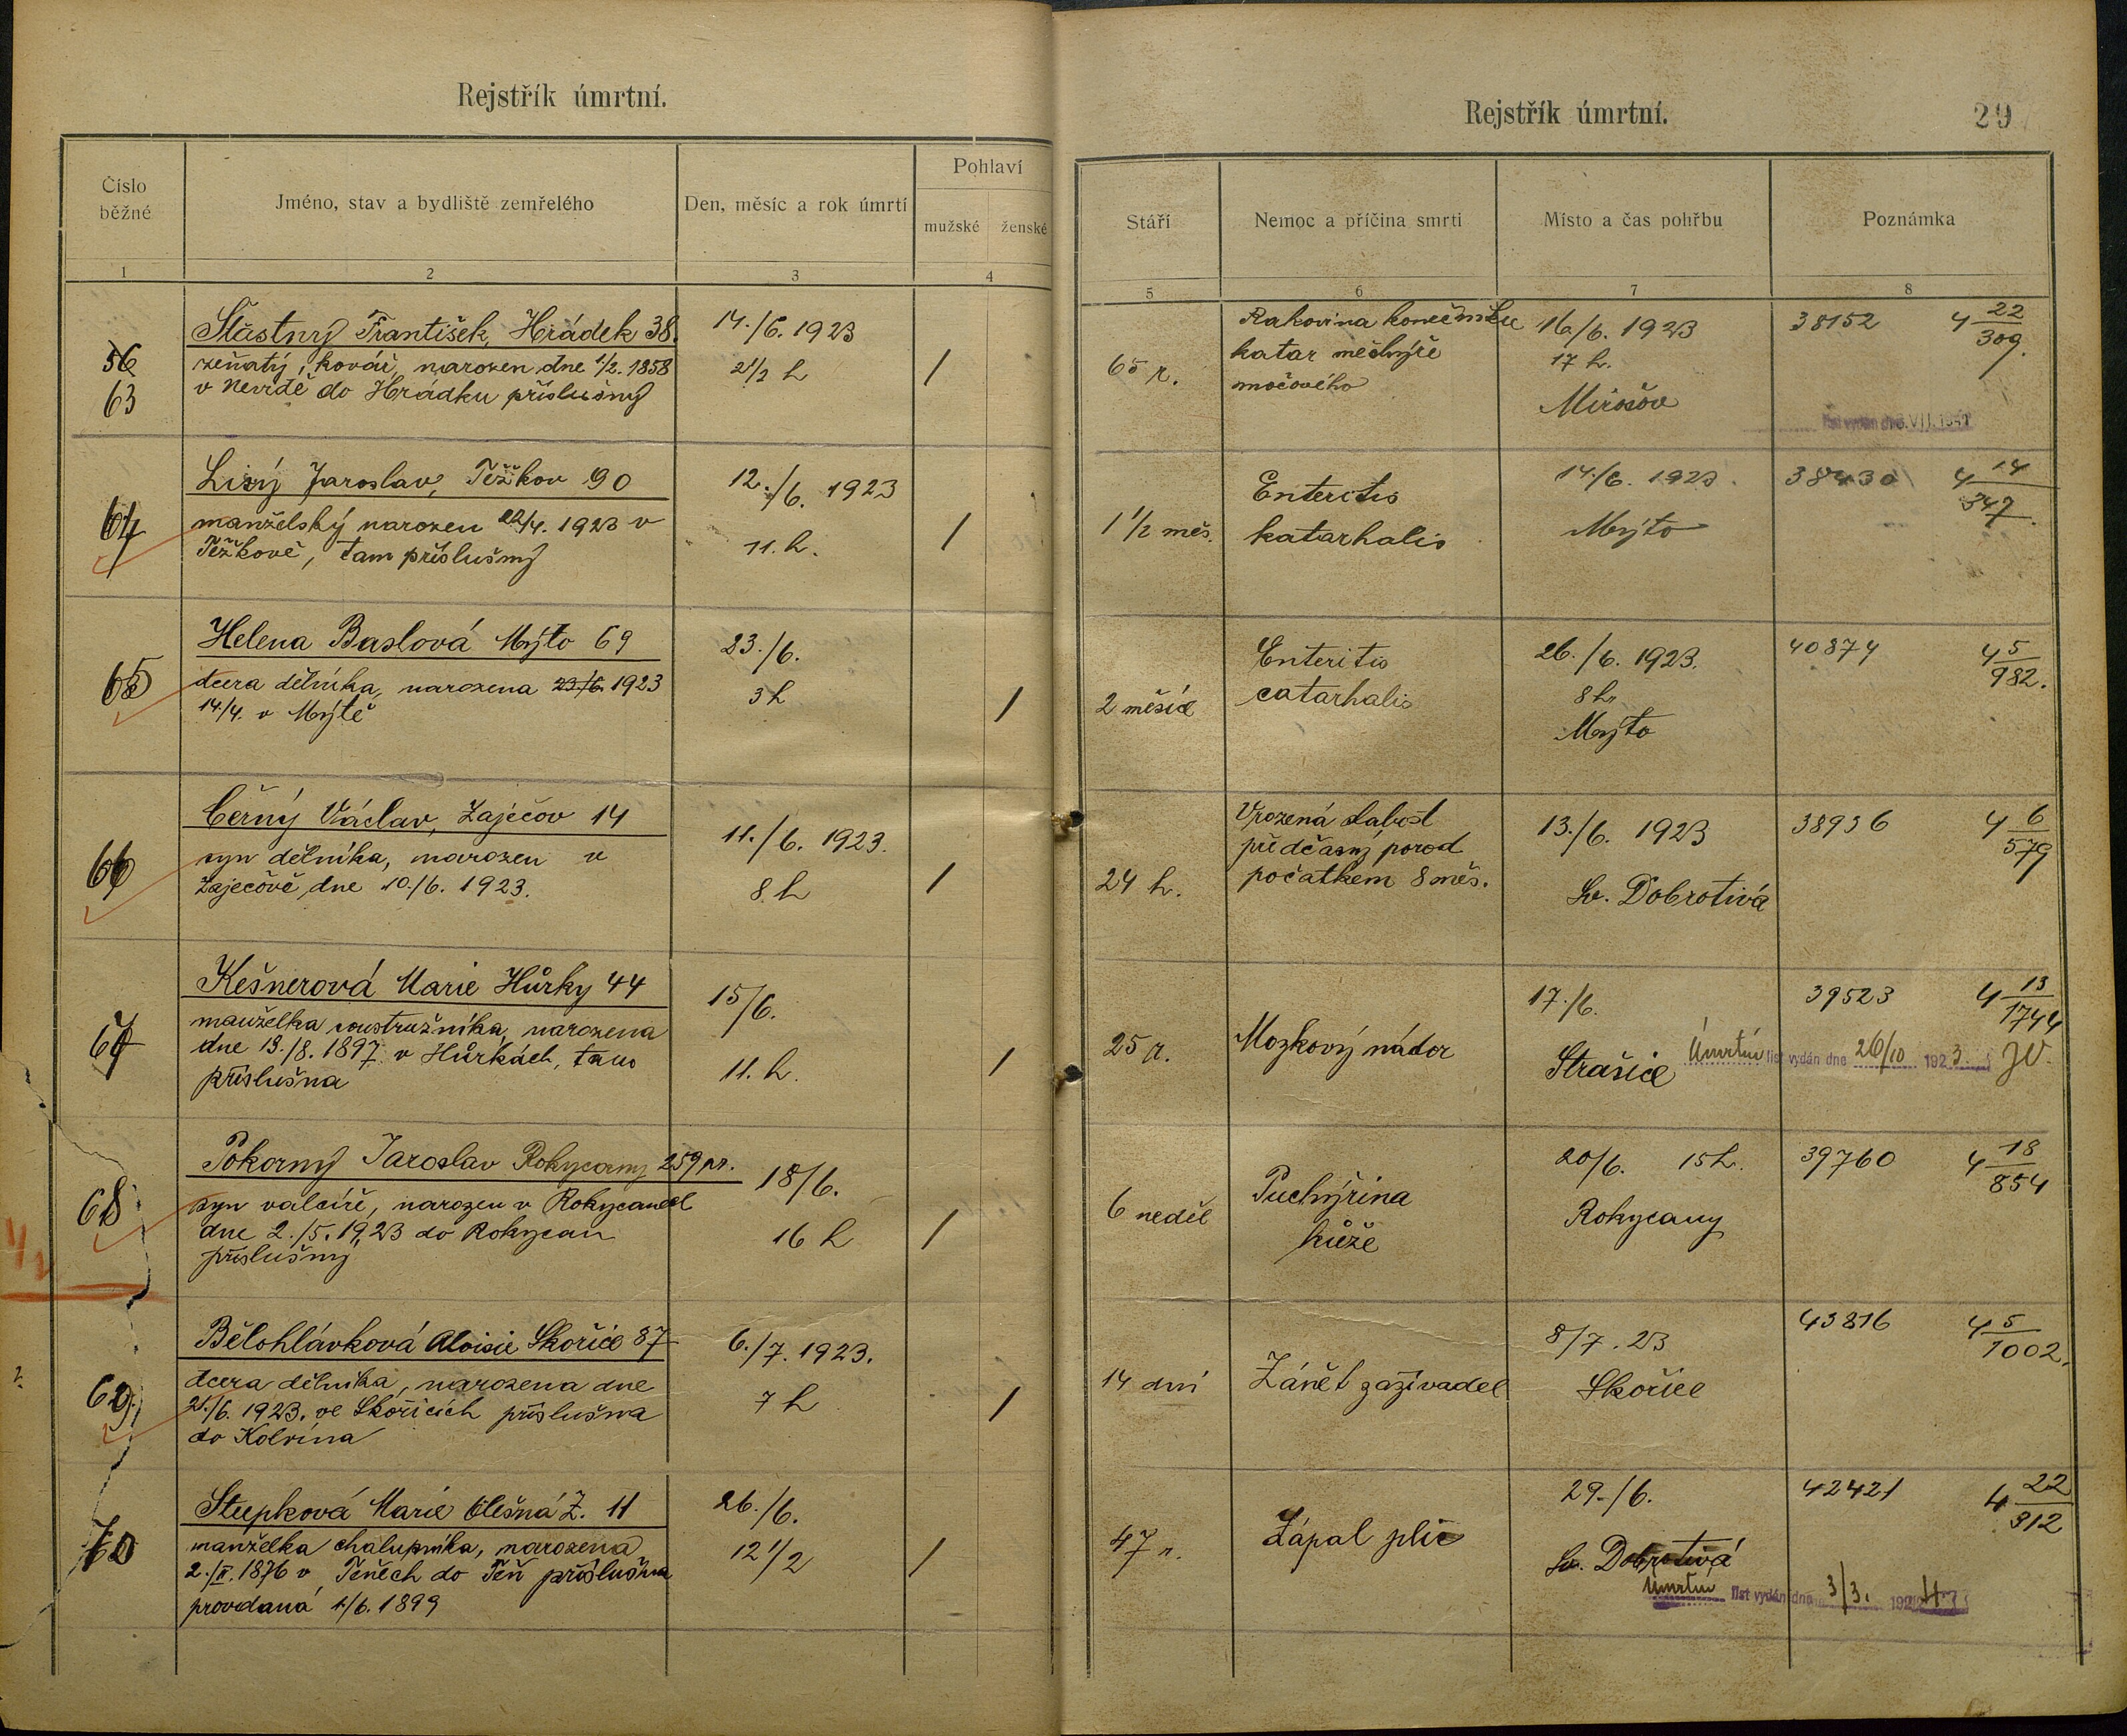 Rejstřík úmrtní.
Číslo běžné
Jméno, stav a bydliště zemřelého
Den, měsíc a rok úmrtí
Pohlaví
mužské
ženské
1
2
3
4
56
63
Šťastný František, Hrádek 38.
ženatý, kovář, narozen dne 1./2. 1858
v Nevidě do Hrádku příslušný
14./6. 1923
2 1/2 h
/
64
Lisý Jaroslav, Těžkov 90
manželský narozen 22/4. 1923 v
Těžkově, tam příslušný
12./6. 1923
11. h.
/
65
Helena Baslová Mýto 69
dcera dělníka, narozena 23./6. 1923
14./4. v Mýtě
23./6.
3 h
/
66
Černý Václav, Zaječov 14
syn dělníka, narozen v
Zaječově dne 10./6. 1923.
11./6. 1923.
8. h
/
67
Kešnerová Marie Hůrky 44
manželka soustružníka, narozena
dne 13./8. 1897 v Hůrkách, tam
příslušna
15/6.
11. h.
/
68
Pokorný Jaroslav Rokycany 259 pr.
syn valcíře, narozen v Rokycanech
dne 2./5. 1923 do Rokycan
příslušný
18/6.
16 h
/
69.
Bělohlávková Aloisie Skořice 87
dcera dělníka, narozena dne
21./6. 1923. ve Skořicích příslušna
do Kolvína
6./7. 1923.
7 h
/
70
Marie Olešná Z. 11
manželka chalupníka, narozena
2./II. 1876 v Těnech do Těň příslušna
provdaná 1/6. 1899
26./6.
12 1/2
/
Rejstřík úmrtní.
29
Stáří
Nemoc a příčina smrti
Místo a čas pohřbu
Poznámka
5
6
7
8
65 r.
Rakovina konečníku
katar měchýře
močového
16./6. 1923
17 h.
Mirošov
38152
4 22/309.
list vydán dne VII. 1941
1 1/2 měs.
Enteritis
katarhalis
14./6. 1923.
Mýto
38430
4 14/347.
2 měsíce
Enteritis
catarhalis
26./6. 1923.
8 h.
Mýto
40874
4 5/982.
24 h.
Vrozená slabost
předčasný porod
počátkem 8 měs.
13./6. 1923
Sv. Dobrotivá
38936
4 6/579
25 r.
Mozkový nádor
17./6.
Strašice
39523
4 13/1744
Úmrtní list vydán dne 26/10 1923.
6 neděl
Puchýřina
kůže
20/6. 15 h.
Rokycany
39760
4 18/854
14 dní
Zánět zažívadel
8/7. 23
Skořice
43816
4 5/1002.
47 r.
Zápal plic
29./6.
Sv. Dobrotivá
42421
4 22/312
Úmrtní list vydán dne 3/3. 1924